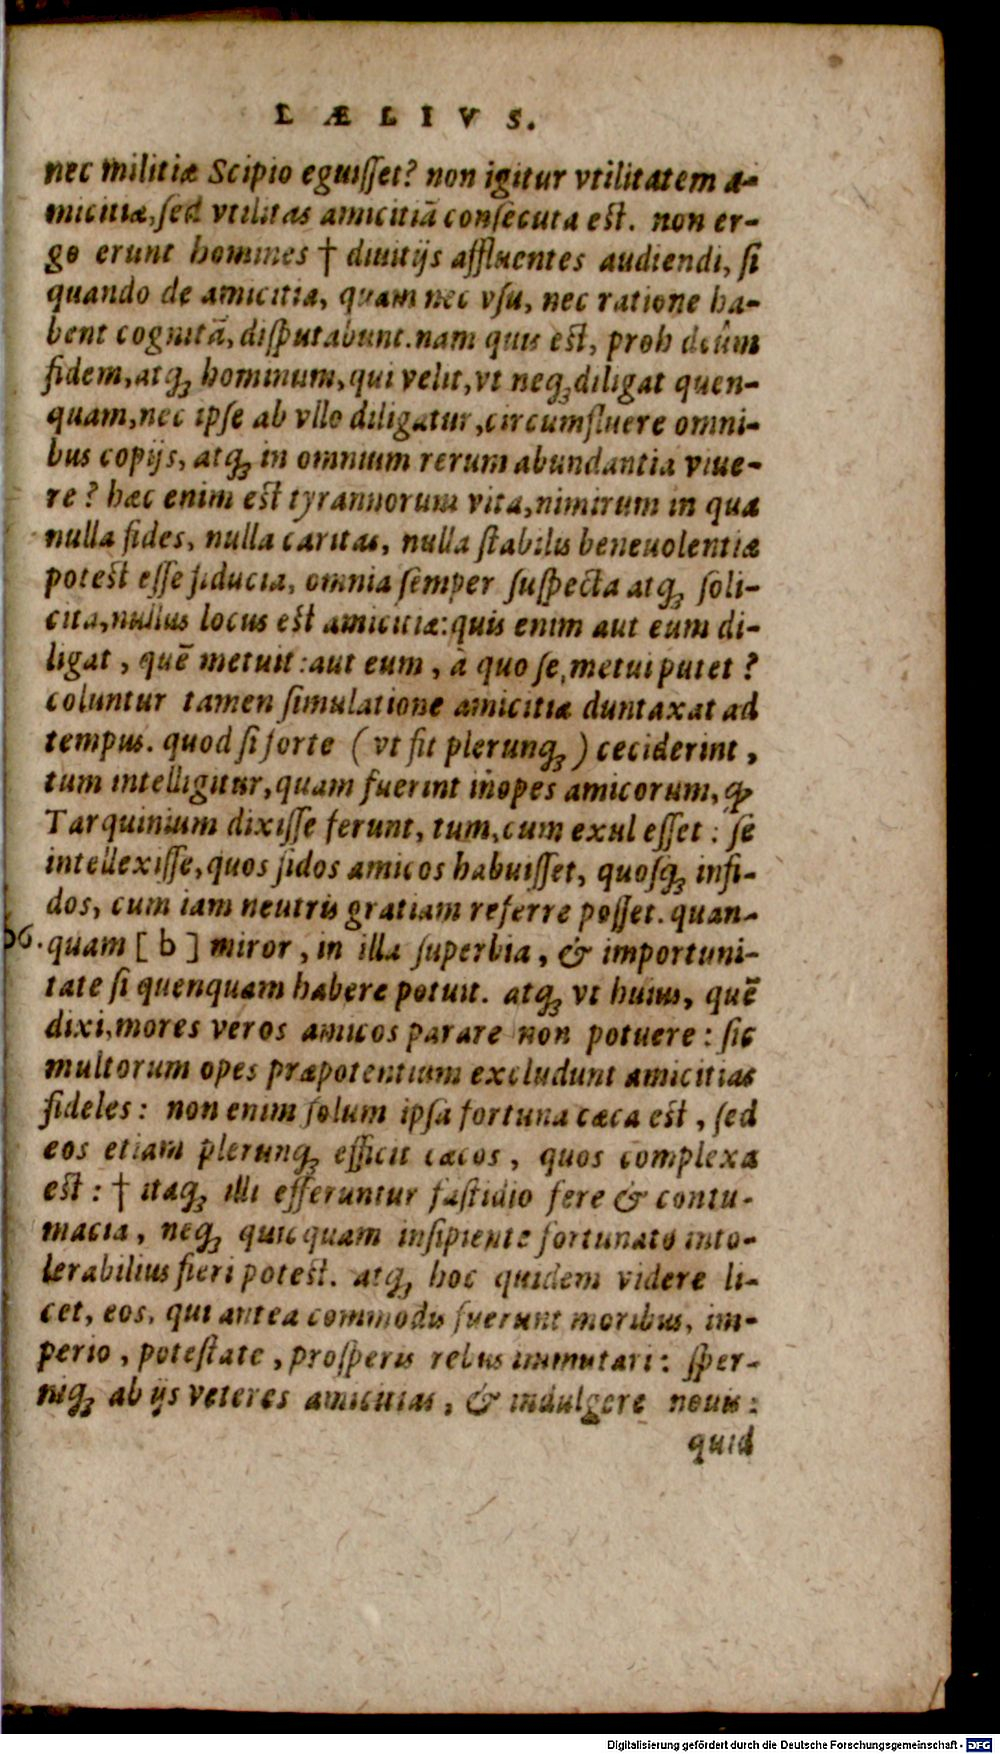 LÆLIVS.
nec militiæ Scipio eguisſet? non igitur vtilitatem a-
micitiæ, ſed vtilitas amicitiā conſecuta eſt. non er-
go erunt homines † diuitijs affluentes audiendi, ſi
quando de amicitia, quam nec vſu, nec ratione ha-
bent cognitā, diſputabunt. nam quis eſt, proh deûm
fidem, atq; hominum, qui velit, vt neq; diligat quen-
quam, nec ipſe ab vllo diligatur, circumfluere omni-
bus copijs, atq; in omnium rerum abundantia viue-
re? hæc enim eſt tyrannorum vita, nimirum in qua
nulla fides, nulla caritas, nulla ſtabilis beneuolentiæ
poteſt eſſe fiducia, omnia ſemper ſuſpecta atq; ſoli-
cita, nullus locus eſt amicitiæ: quis enim aut eum di-
ligat, quē metuit: aut eum, à quo ſe, metui putet?
coluntur tamen ſimulatione amicitiæ duntaxat ad
tempus. quod ſi forte (vt fit plerunq;) ceciderint,
tum intelligitur, quam fuerint inopes amicorum, ꝙ
Tarquinium dixiſſe ferunt, tum, cum exul eſſet: ſe
intellexiſſe, quos fidos amicos habuiſſet, quoſq; infi-
dos, cum iam neutris gratiam referre poſſet. quan-
56. quam [b] miror, in illa ſuperbia, & importuni-
tate ſi quenquam habere potuit. atq; vt huius, quē
dixi, mores veros amicos parare non potuere: ſic
multorum opes præpotentium excludunt amicitias
fideles: non enim ſolum ipſa fortuna cæca eſt, ſed
eos etiam plerunq; efficit cæcos, quos complexa
eſt: † itaq; illi efferuntur faſtidio fere & contu-
macia, neq; quicquam inſipiente fortunato into-
lerabilius fieri poteſt. atq; hoc quidem videre li-
cet, eos, qui antea commodis fuerunt moribus, im-
perio, poteſtate, proſperis rebus immutari: ſper-
niq; ab ijs veteres amicitias, & indulgere nouis:
quid
Digitalisierung gefördert durch die Deutsche Forschungsgemeinschaft - DFG